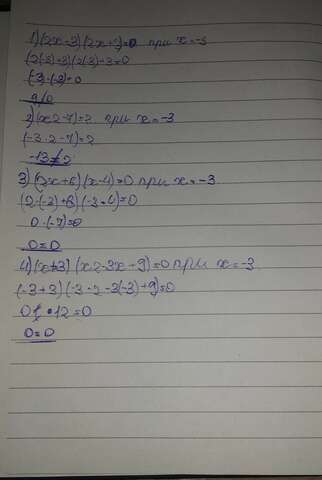 1) (2x-3) (2x+3)=0 при x=-3
(2(-3)+3)(2(3)-3=0
(-3)·(-3)=0
9≠0
2) (x2-7)=2 при x=-3
(-3·2-7)=2
-13≠2
3) (2x+6) (x-4)=0 при x=-3
(2·(-3)+6) (-3-4)=0
0·(-7)=0
0=0
4) (x+3) (x2-3x+9)=0 при x=-3
(-3+3) (-3·2-3(-3)+9)=0
0·12=0
0=0